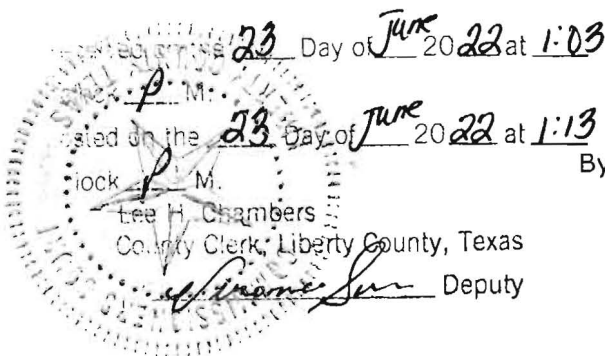 23 Day of June 2022 at 1:03
P M.
sted on the 23 Day of June 2022 at 1:13
lock P M. By
Lee H. Chambers
County Clerk, Liberty County, Texas
Deputy